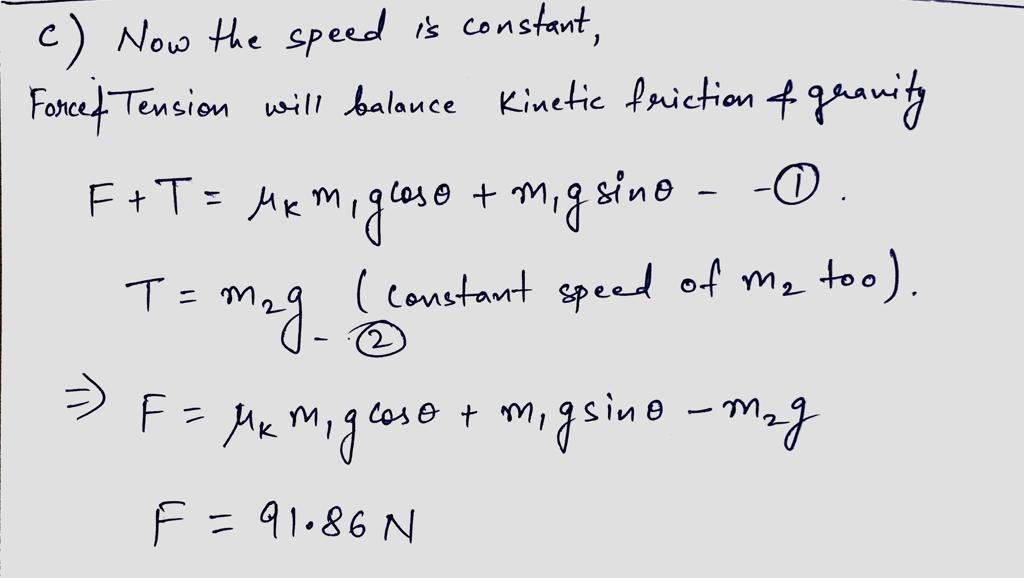 c) Now the speed is constant,
Force & Tension will balance Kinetic friction & gravity
F + T = μₖ m₁g cosθ + m₁g sinθ - - ①.
T = m₂g (constant speed of m₂ too).
- ②
⇒ F = μₖ m₁g cosθ + m₁g sinθ - m₂g
F = 91.86 N